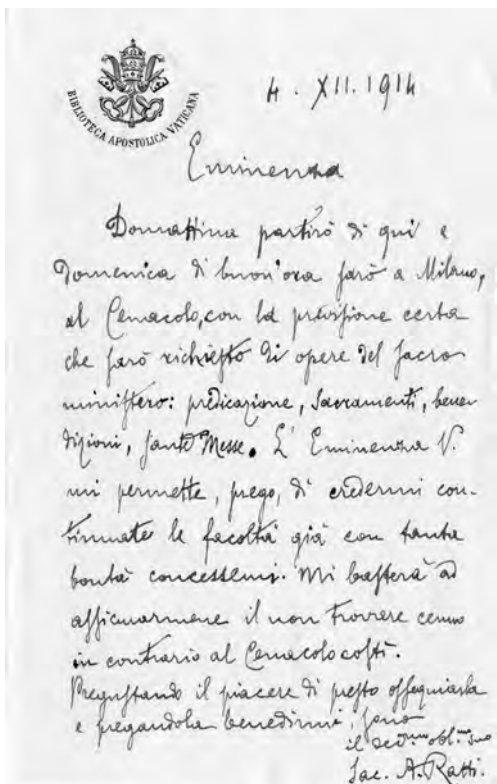 BIBLIOTECA APOSTOLICA VATICANA
4. XII. 1914
Eminenza
Domattina partirò di qui e
Domenica di buon'ora sarò a Milano,
al Cenacolo, con la previsione certa
che sarò richiesto di opere del sacro
ministero: predicazione, Sacramenti, bene
dizioni, sante Messe. L'Eminenza V.
mi permette, prego, di credermi con-
tinuate le facoltà già con tanta
bontà concessemi. Mi basterà ad
assicurarmene il non trovare cenno
in contrario al Cenacolo costì.
Pregustando il piacere di presto ossequiarla
e pregandola benedirmi, sono
il dev.mo obbl.mo suo
Sac. A. Ratti.